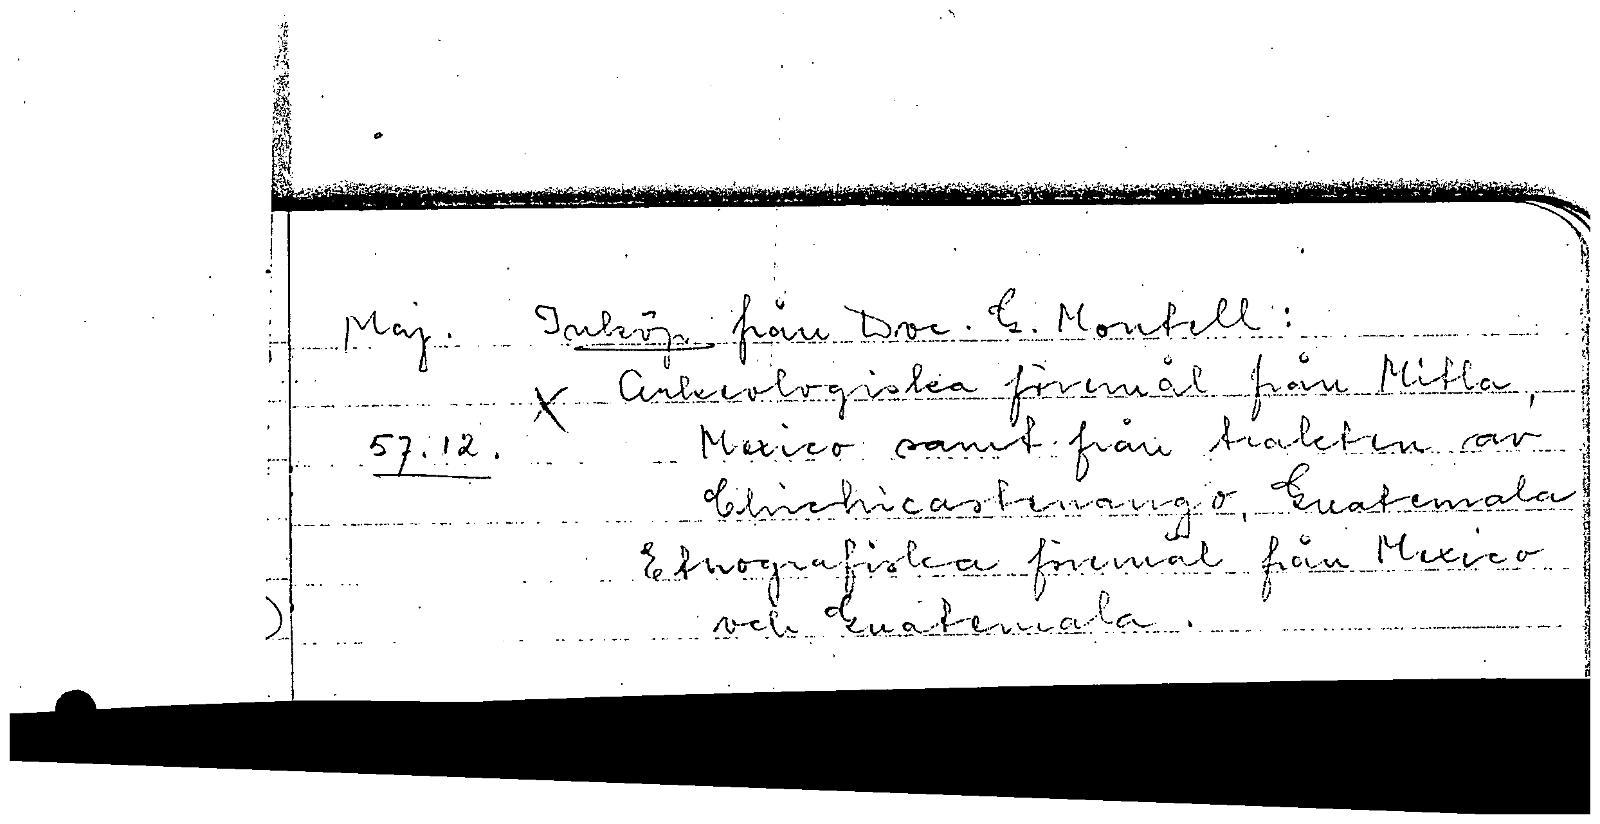 Maj. Inköp från Doc. G. Montell:
X Arkeologiska föremål från Mitla,
57.12. Mexico samt från trakten av
Chichicastenango, Guatemala
Etnografiska föremål från Mexico
och Guatemala.